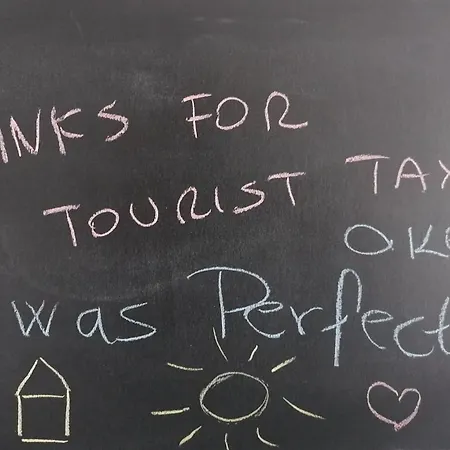 ANKS FOR
TOURIST TAX
OK
was Perfect